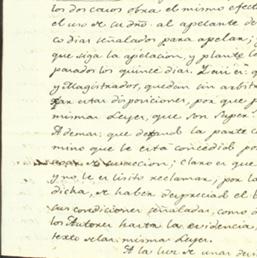 los dos casos obra el mismo efect
el uso de su dño. al apelante de
co dias señalados para apelar; y
que siga la apelacion, y plante l
parados los quince dias.
y Magistrados, quedan sin arbit
estas disposiciones, por que p
mismas Leyes, que son super
Ademas: que la parte co
mino que le está concedido po
correccion; claro es que
y no le es lisito reclamar, por lo
dicha, se haber despreciad el b
sus condiciones señaladas, como
los Autores hasta la evidencia,
texto de las mismas Leyes.
A la luz de unas